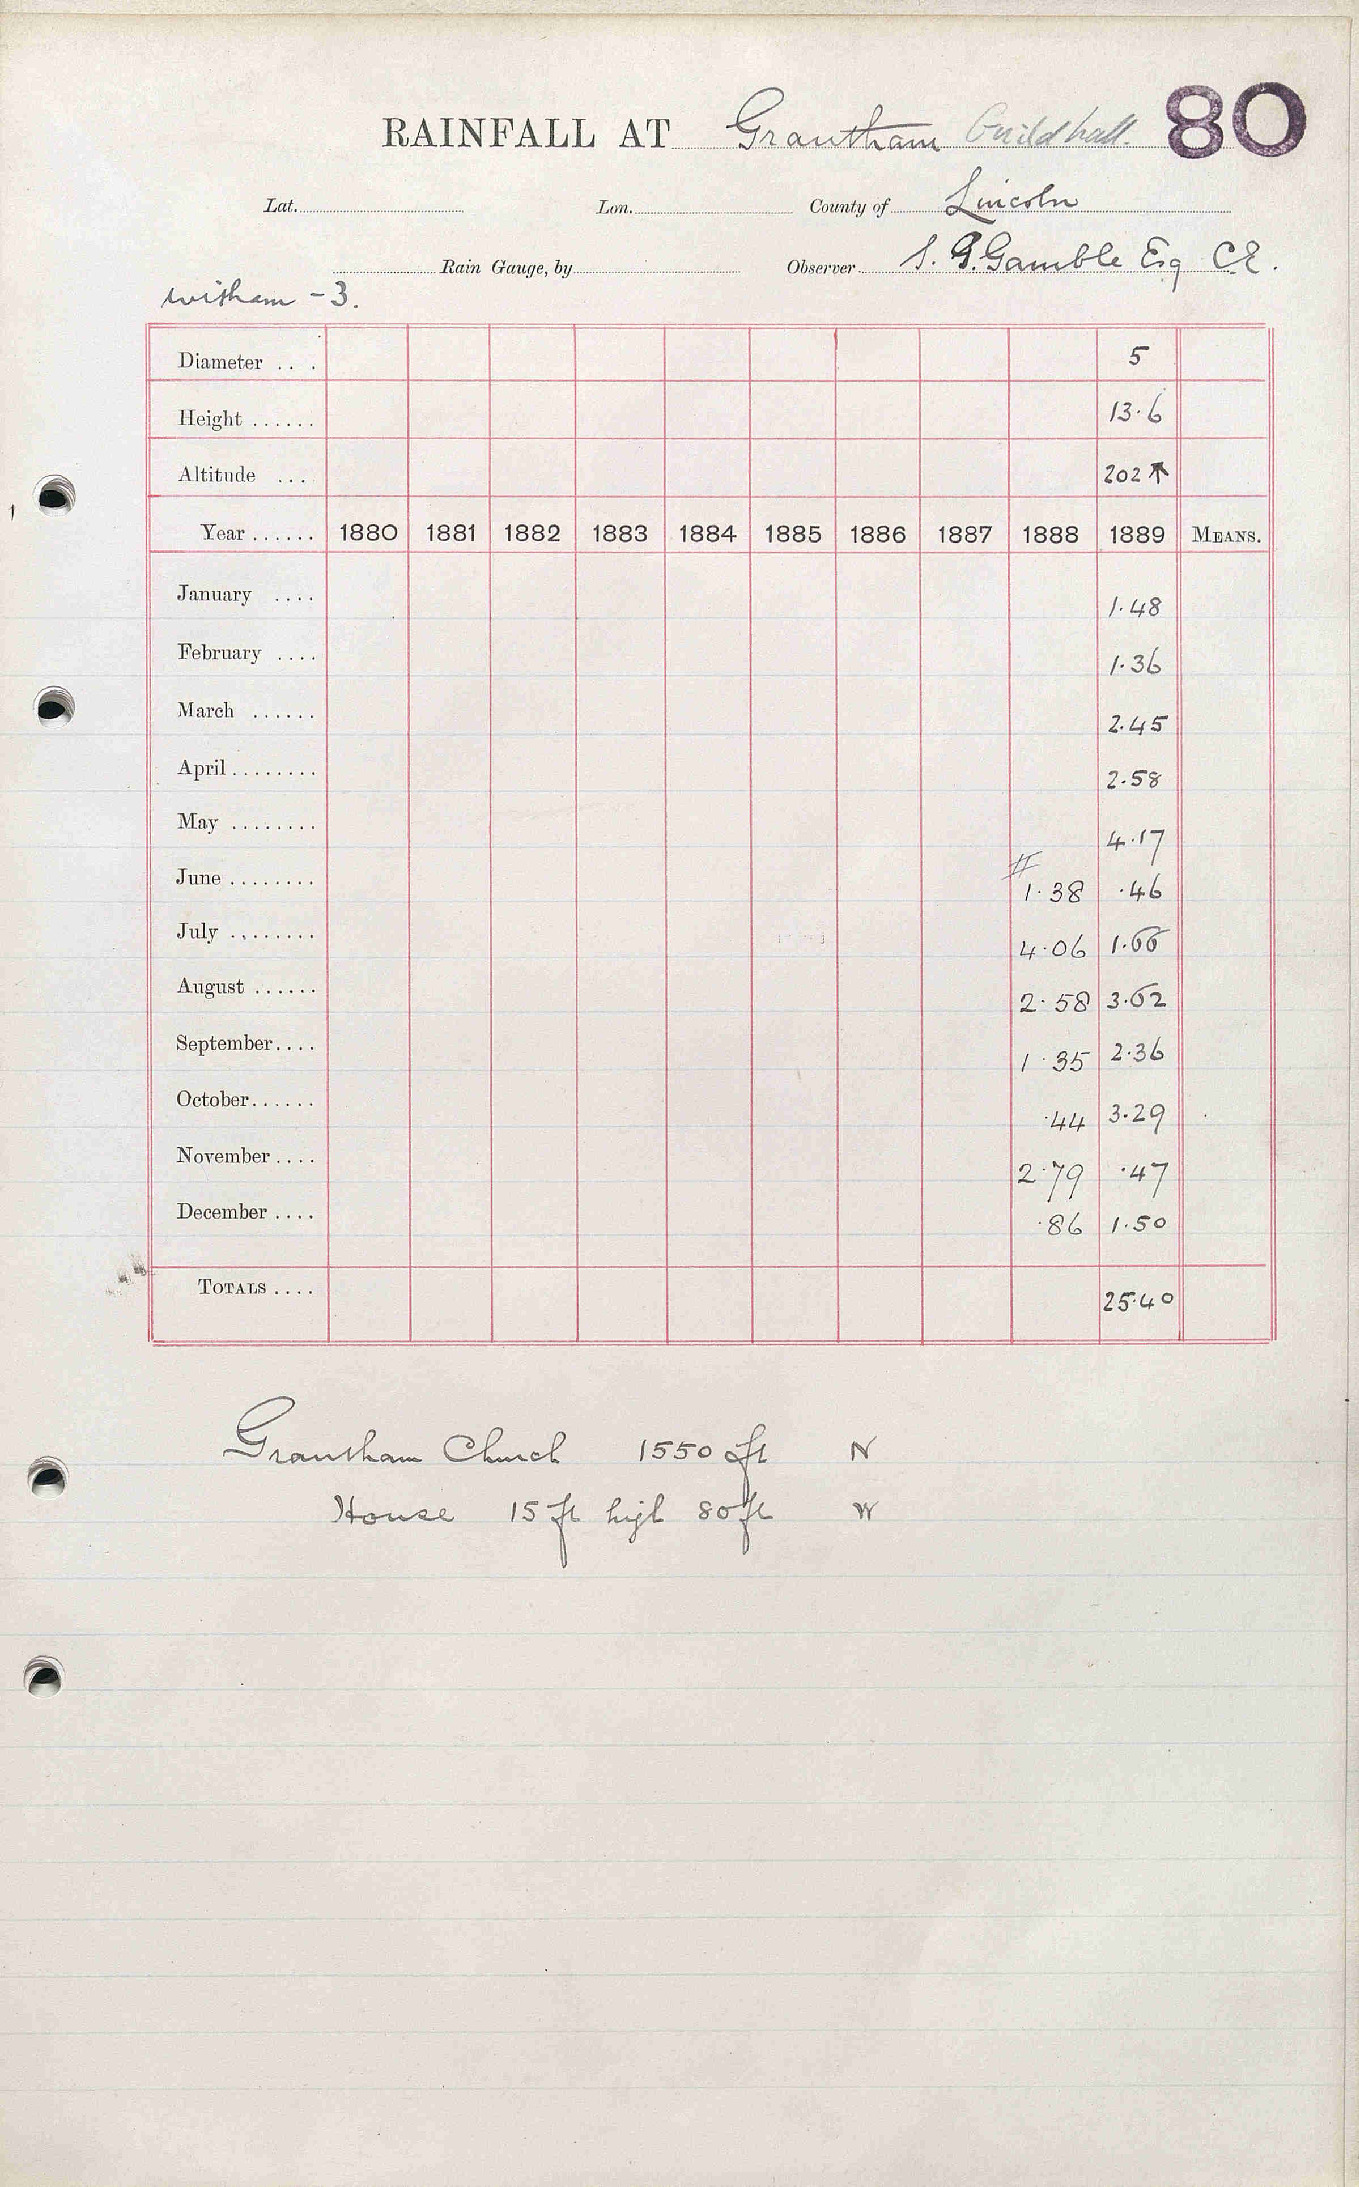 RAINFALL AT Grantham Guildhall. 80
Lat. Lon. County of Lincoln
Rain Gauge, by Observer S. G. Gamble Esq CE.
Witham - 3.
Diameter . . . 5
Height ...... 13.6
Altitude ... 202 ↑
Year ...... 1880 1881 1882 1883 1884 1885 1886 1887 1888 1889 MEANS.
January .... 1.48
February .... 1.36
March ...... 2.45
April ........ 2.58
May ........ 4.17
June ........ # 1.38 .46
July ........ 4.06 1.66
August ...... 2.58 3.62
September.... 1.35 2.36
October...... .44 3.29
November .... 2.79 .47
December .... .86 1.50
TOTALS .... 25.40
Grantham Church 1550 ft N
House 15 ft high 80 ft W